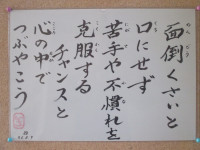 面倒くさいと
口にせず
苦手や不慣れを
克服する
チャンスと
心の中で
つぶやこう